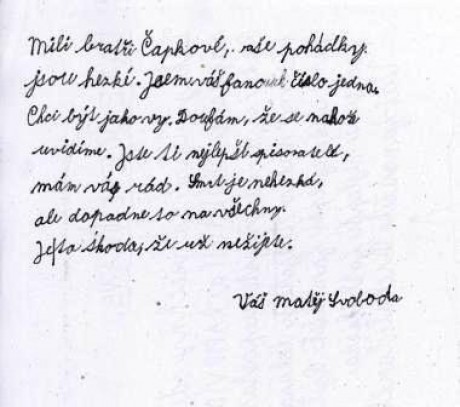 Milí bratři Čapkové, vaše pohádky
jsou hezké. Jsem váš fanoušek číslo jedna.
Chci být jako vy. Doufám, že se nahoře
uvidíme. Jste ti nejlepší spisovatelé,
mám vás rád. Smrt je nehezká,
ale dopadne to na všechny.
Je to škoda, že už nežijete.
Váš Matěj Svoboda